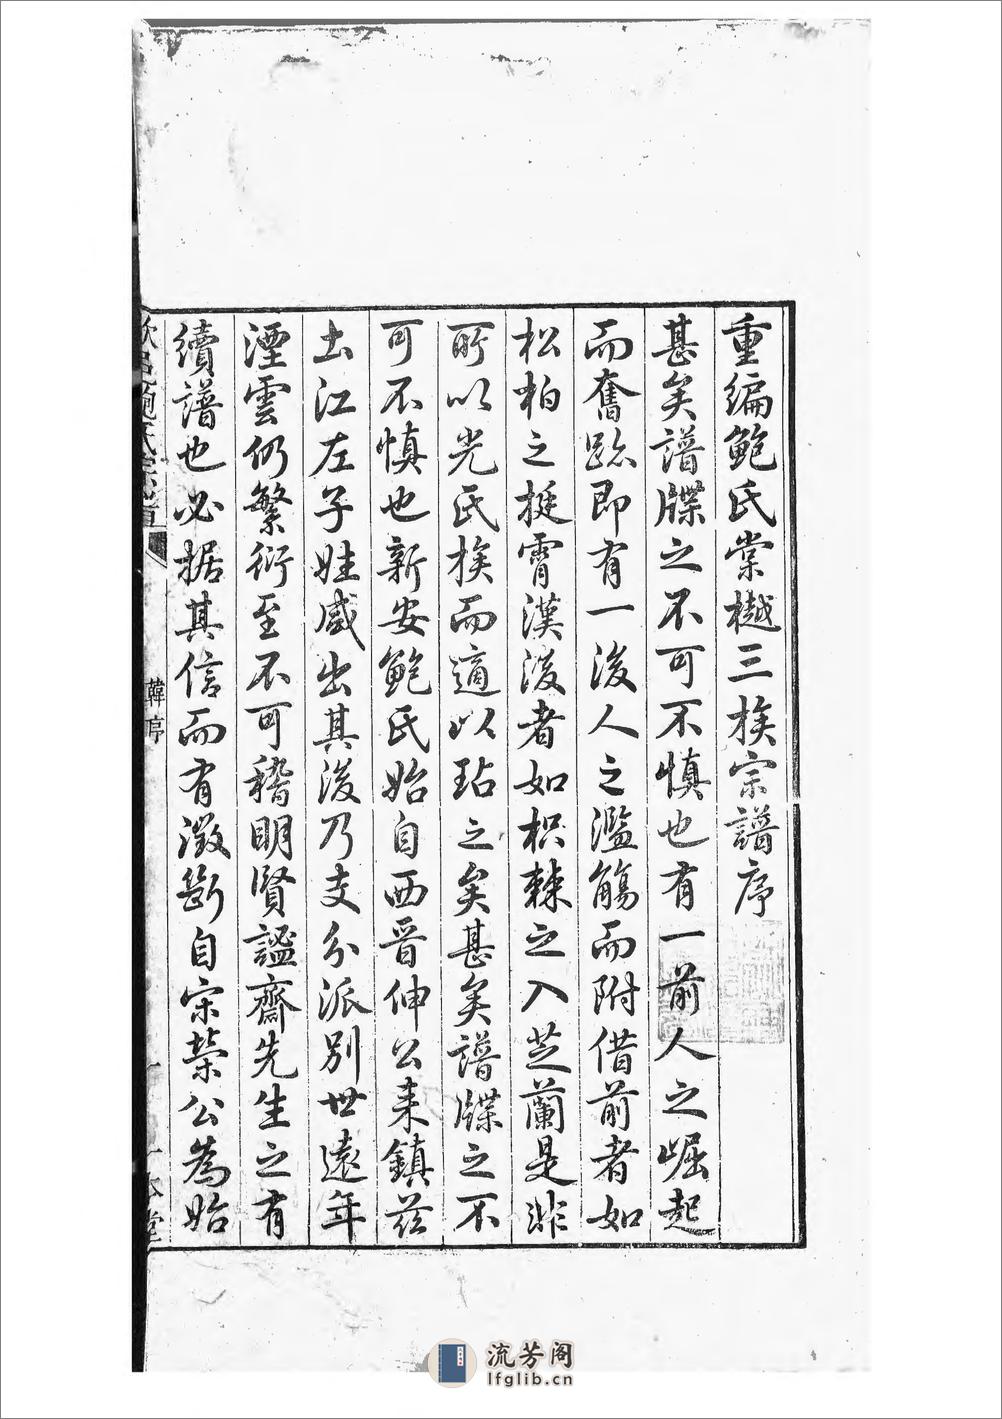 重編鮑氏棠樾三族宗譜序
甚矣譜牒之不可不慎也有一前人之崛起
而奮跡即有一後人之濫觴而附借前者如
松柏之挺霄漢後者如枳棘之入芝蘭是非
所以光氏族而適以玷之矣甚矣譜牒之不
可不慎也新安鮑氏始自西晉伸公来鎮茲
土江左子姓咸出其後乃支分派別世遠年
湮雲仍繁衍至不可稽明賢謐齋先生之有
續譜也必据其信而有徵斷自宋榮公為始
韓序
流芳阁
lfglib.cn